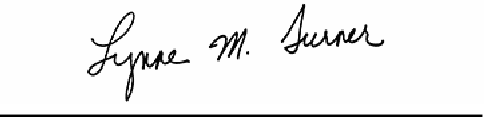 Lynne M. Turner